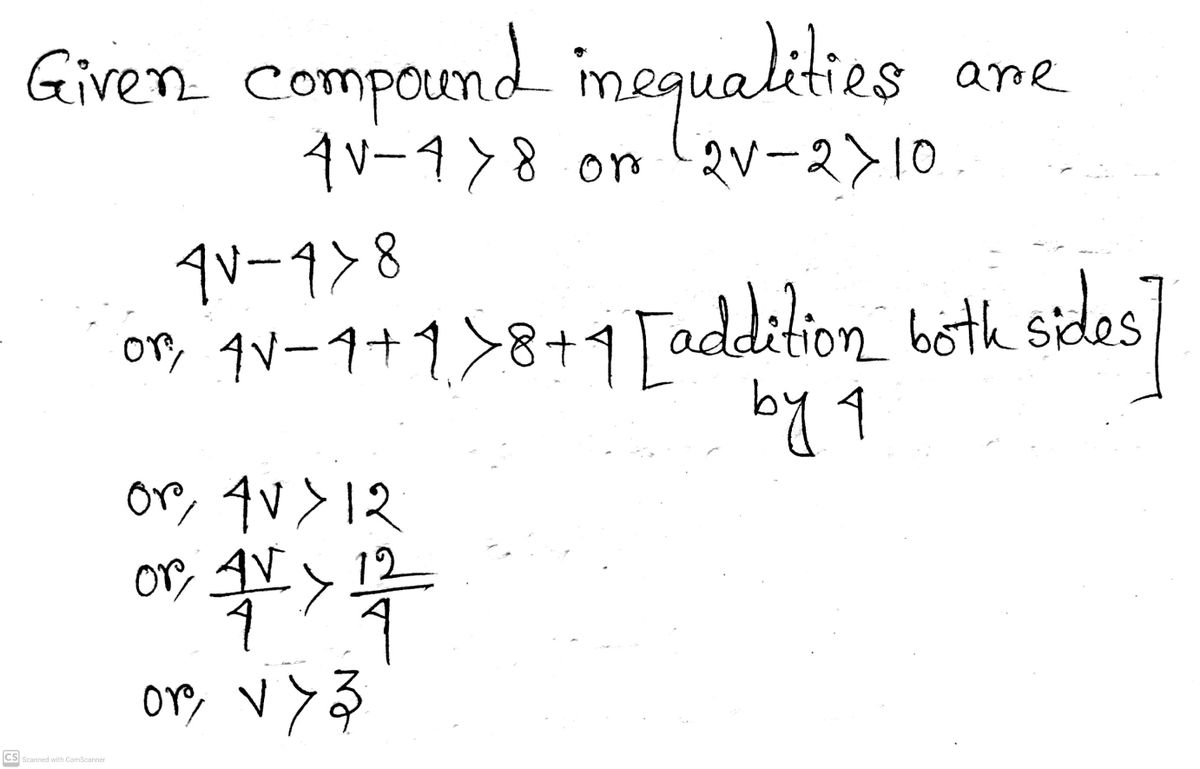 Given compound inequalities are
4v-4>8 or 2v-2>10
4v-4>8
or, 4v-4+4>8+4 [addition both sides]
by 4
or, 4v>12
or, 4v/4 > 12/4
or, v>3
CS Scanned with CamScanner